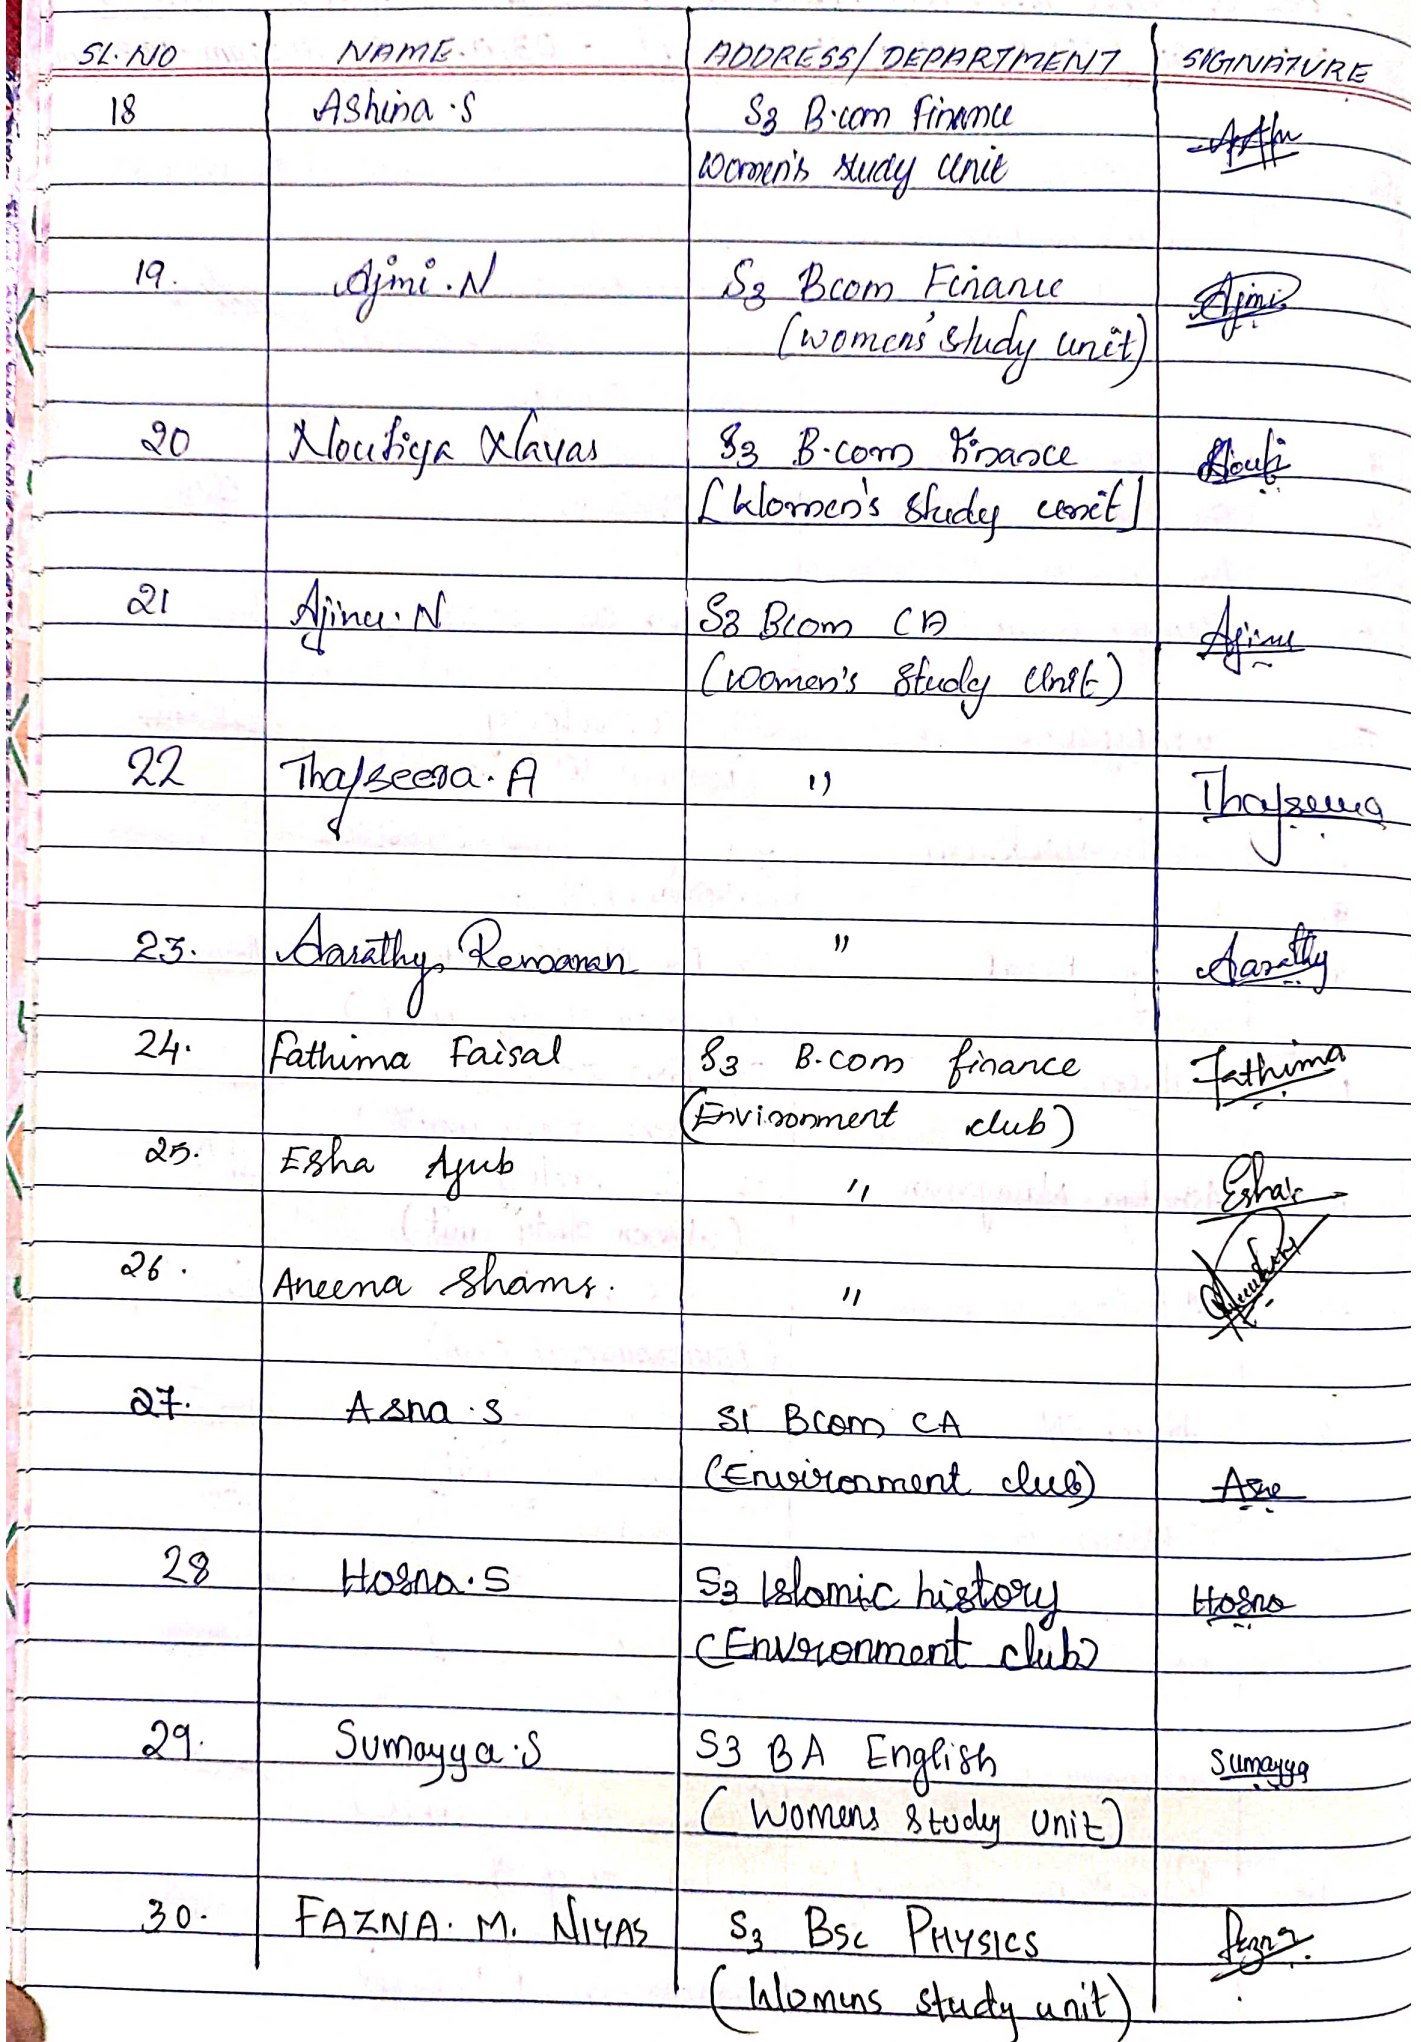 SL.NO NAME. ADDRESS/DEPARTMENT SIGNATURE
18 Ashina .S S3 B.com Finance
Women's study Unit
19. Ajmi .N S3 Bcom Finance Ajmi
(women's study unit)
20 Noufiya Navas S3 B.com Finance Noufi
[Women's study unit]
21 Ajinu. N S3 Bcom CA Ajinu
(Women's study Unit)
22 Thajseera. A " Thajseera
23. Aarathy Remanan " Aarathy
24. Fathima Faisal S3 B.com finance Fathima
(Environment club)
25. Esha Ayub " Esha
26. Aneena Shams. "
27. Asna .S S1 Bcom CA
(Environment club) Asna
28 Hosna.S S3 Islamic history Hosna
(Environment club)
29. Sumayya.S S3 BA English Sumayya
(Womens study Unit)
30. FAZNA. M. NIYAS S3 BSc PHYSICS Fazna
(Womens study unit)